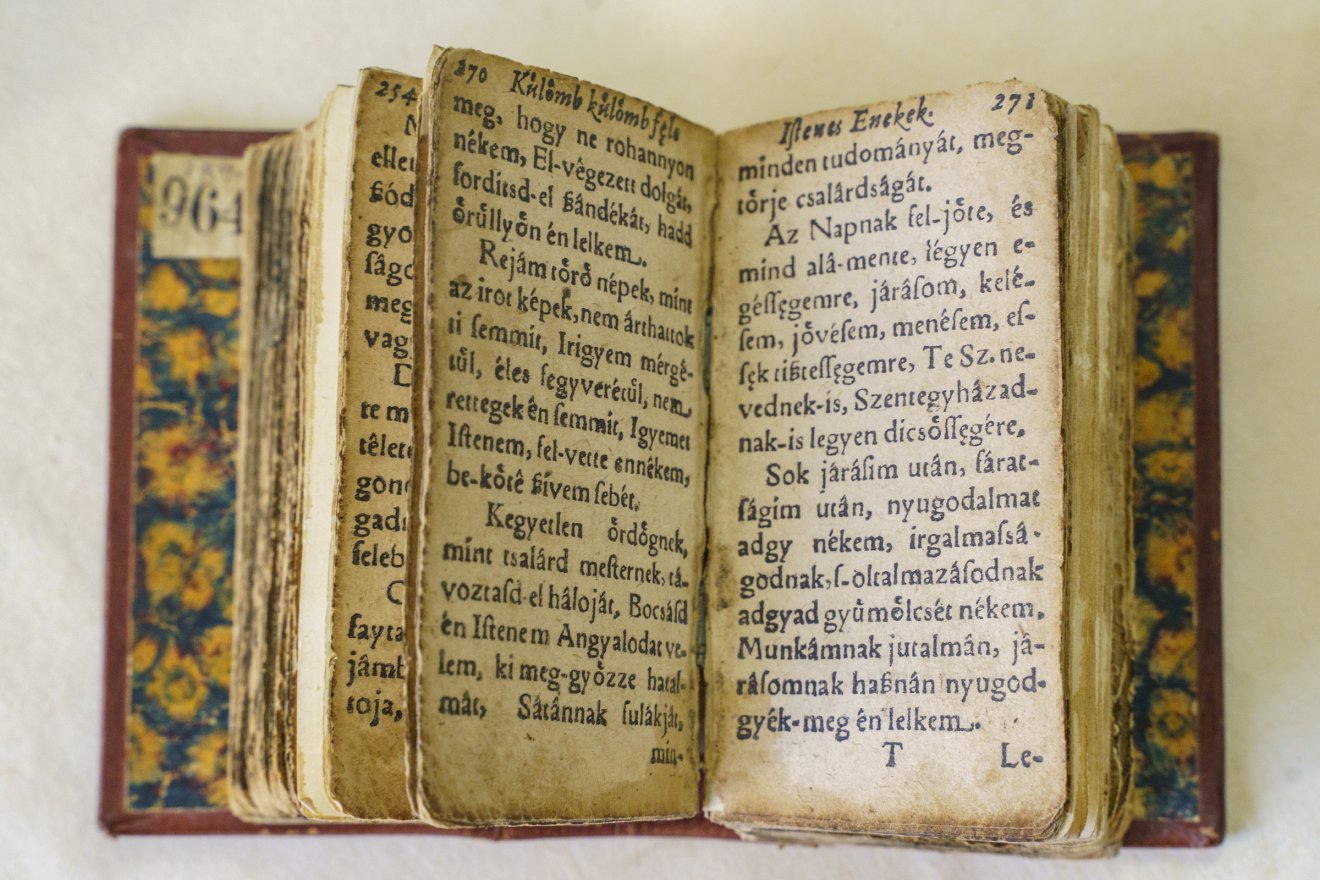 964
254
elle
ßód
gyo
ſágo
meg
vag
te m
têlet
gon
gad
feleb
fayta
jámb
toja,
270 Ku̇lȯmb ku̇lȯmbféle
meg, hogy ne rohannyon
nékem, El-vêgezett dolgát,
fordítsd-el ßándékát, hadd
ȯru̇llyȯn én lelkem.
Rejám tȯrȯ népek, mint
az irot képek, nem árthattok
ti ſemmit, Irigyem mérgé-
tu̇l, éles fegyverétu̇l, nem
rettegek ên ſemmit, Igyemet
Iſtenem, fel-vette ennêkem,
be-kȯtê ßívem ſebét,
Kegyetlen ȯrdȯgnek,
mint tsalárd meſternek, tá-
voztaſd-el háloját, Bocsáſd
én Iſtenem Angyalodat ve-
lem, ki meg-gyȯzze hatal-
mát, Sátánnak ſulákját,
min-
Iſtenes Enekek. 271
minden tudományát, meg-
tȯrje csalárdságát.
Az Napnak fel-jȯte, és
mind alá-mente, légyen e-
géſſęgemre, járáſom, kelé-
ſem, jȯvéſem, menéſem, eſ-
ſęk tißteſſęgemre, Te Sz. ne-
vednek-is, Szentegyházad-
nak-is legyen dicsȯſſęgére,
Sok járáſim után, fárat-
ſágim után, nyugodalmat
adgy nékem, irgalmaſsá-
godnak, ſ-oltalmazáſodnak
adgyad gyu̇mȯlcsét nékem,
Munkámnak jutalmán, já-
ráſomnak haßnán nyugod-
gyék-meg én lelkem.
T Le-